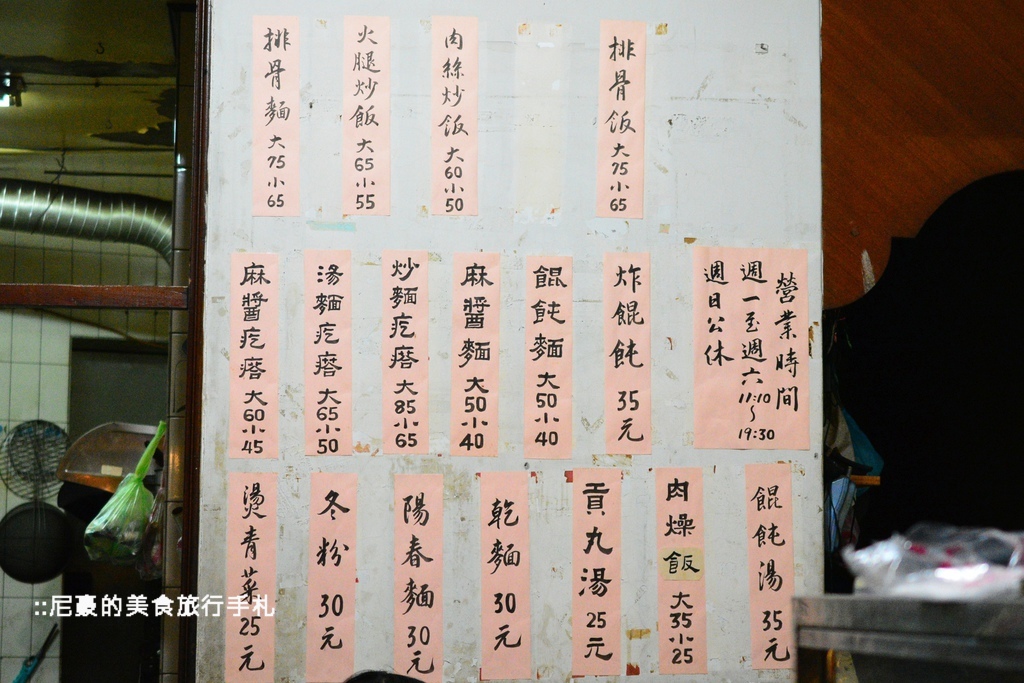 排骨飯大75小65
肉絲炒飯大60小50
火腿炒飯大65小55
排骨麵大75小65
營業時間
週一至週六11:10~19:30
週日公休
炸餛飩35元
餛飩麵大50小40
麻醬麵大50小40
炒麵疙瘩大85小65
湯麵疙瘩大65小50
麻醬疙瘩大60小45
餛飩湯35元
肉燥飯大35小25
貢丸湯25元
乾麵30元
陽春麵30元
冬粉30元
燙青菜25元
::尼豪的美食旅行手札